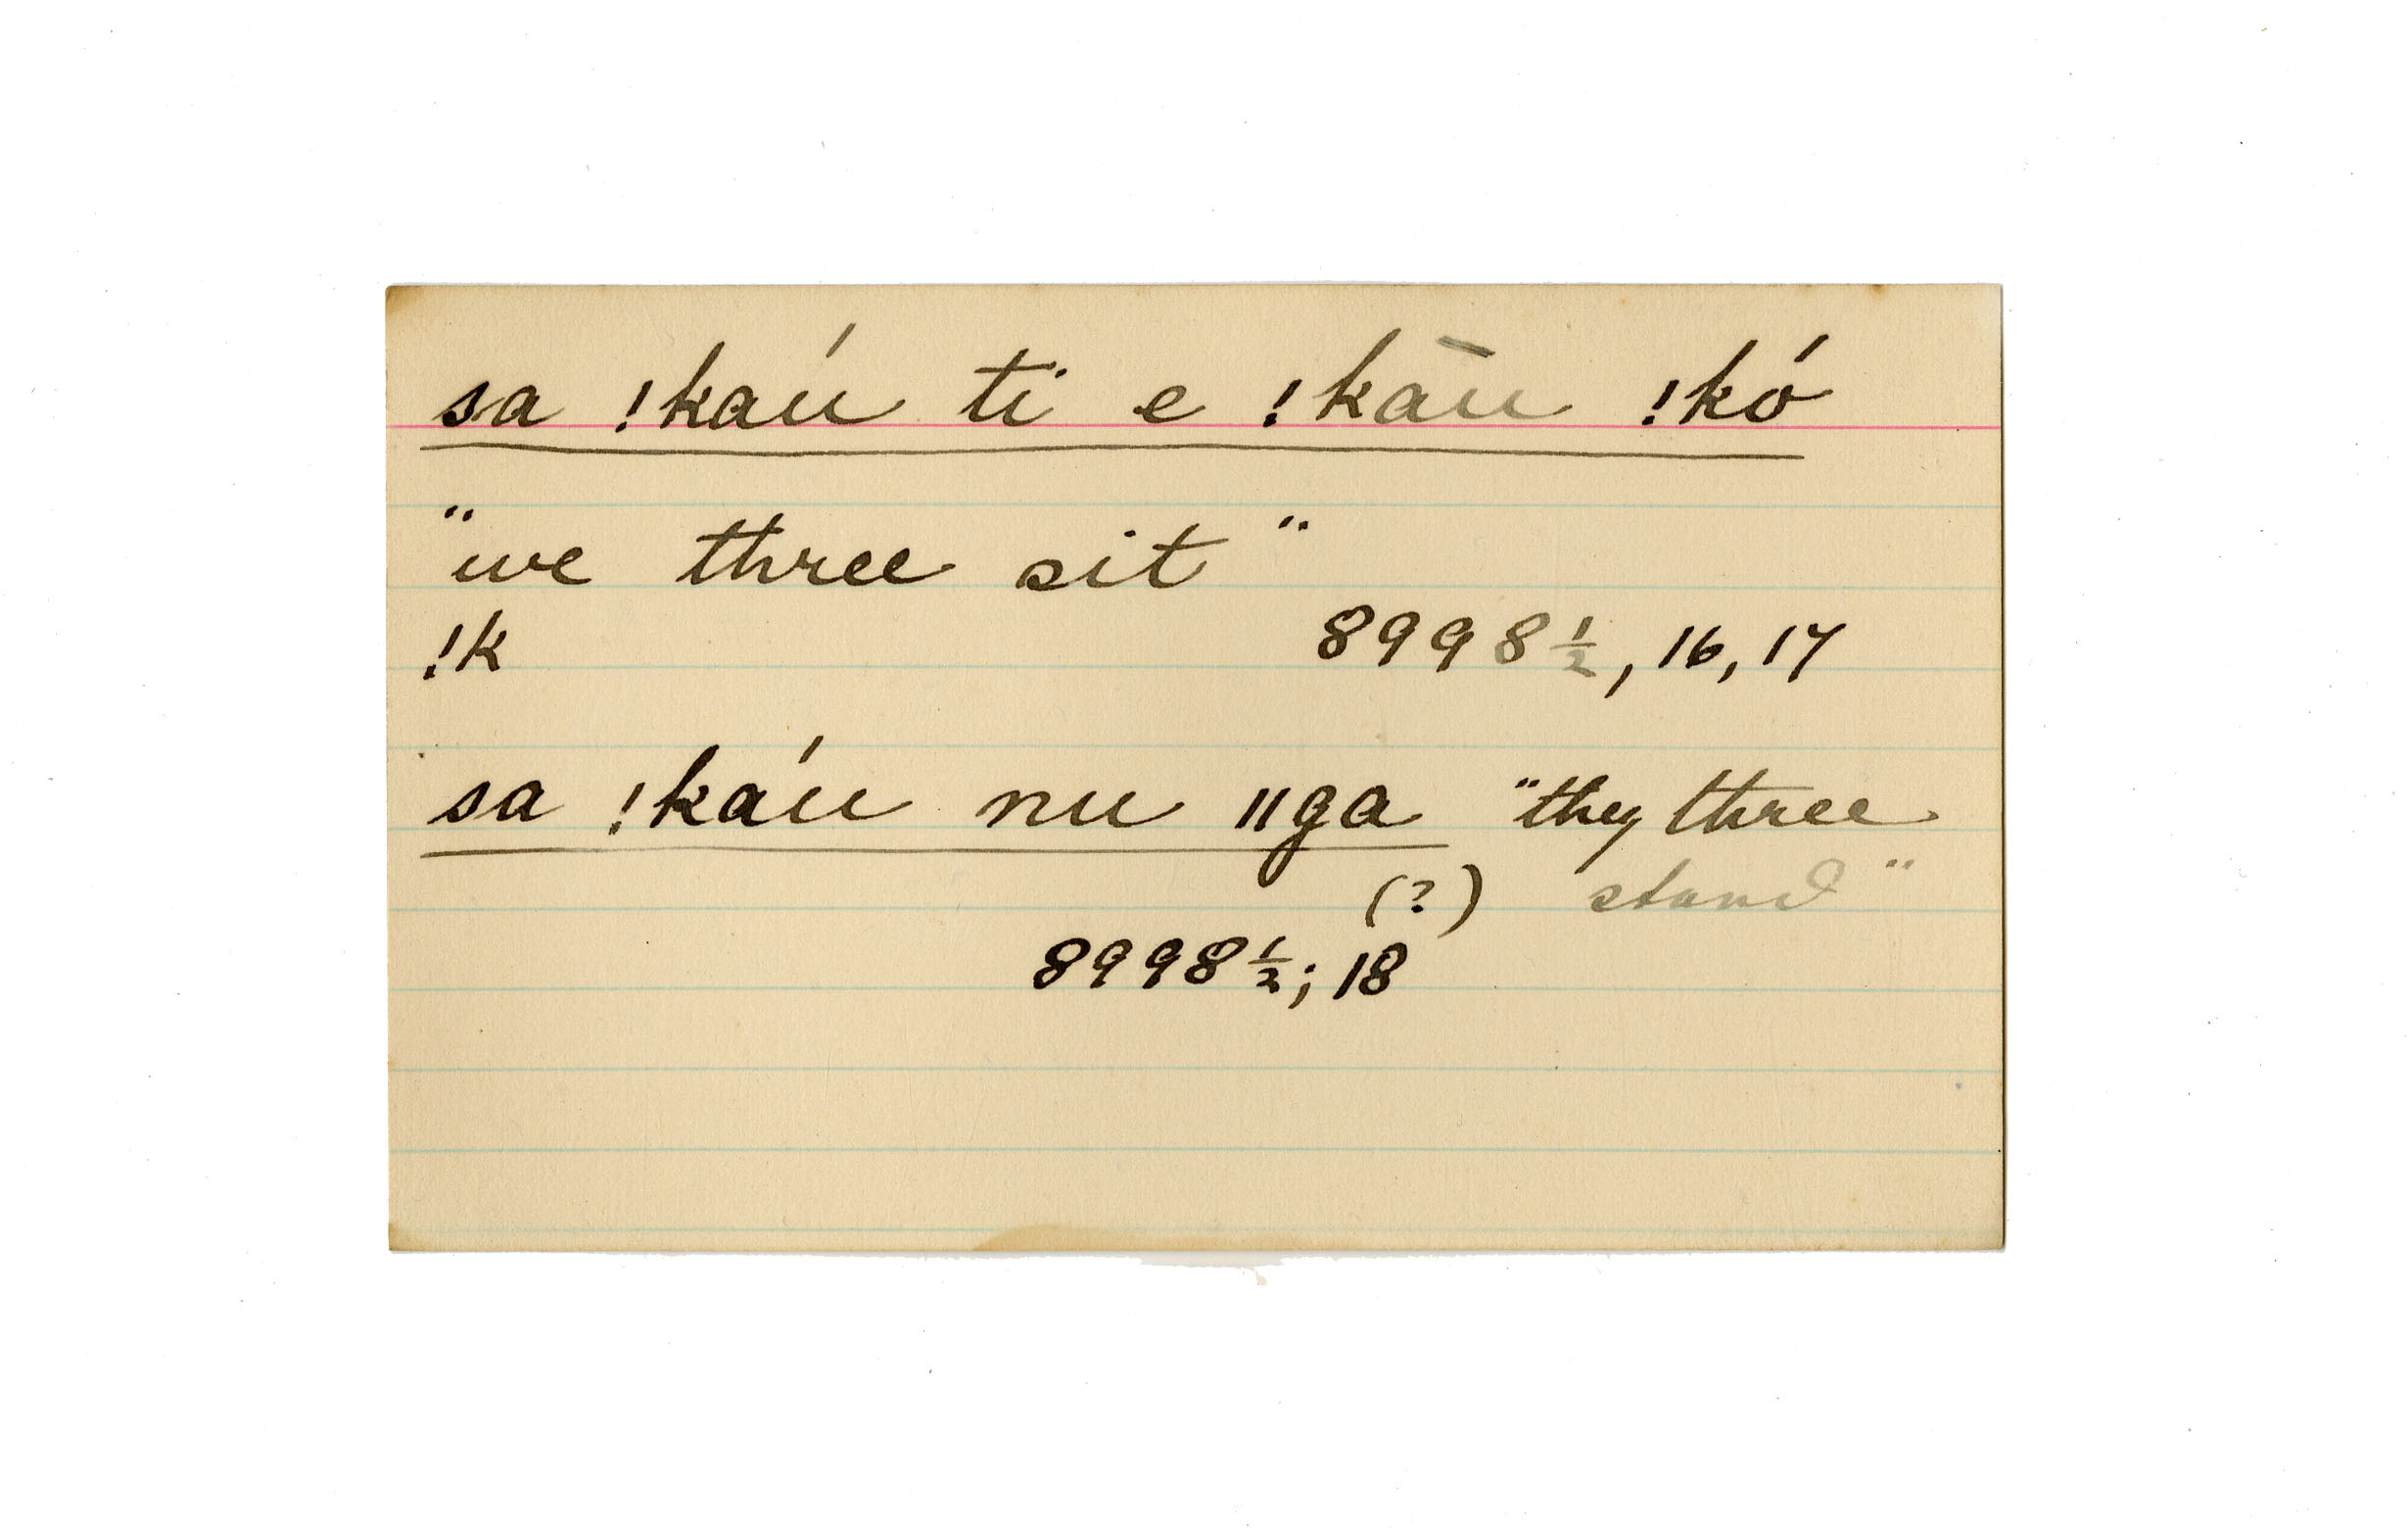 sa !kaú ti e !kāu !kó
"we three sit"
!k 8998½, 16, 17
sa !káu nu ǁga "they three
(?) stand"
8998½; 18